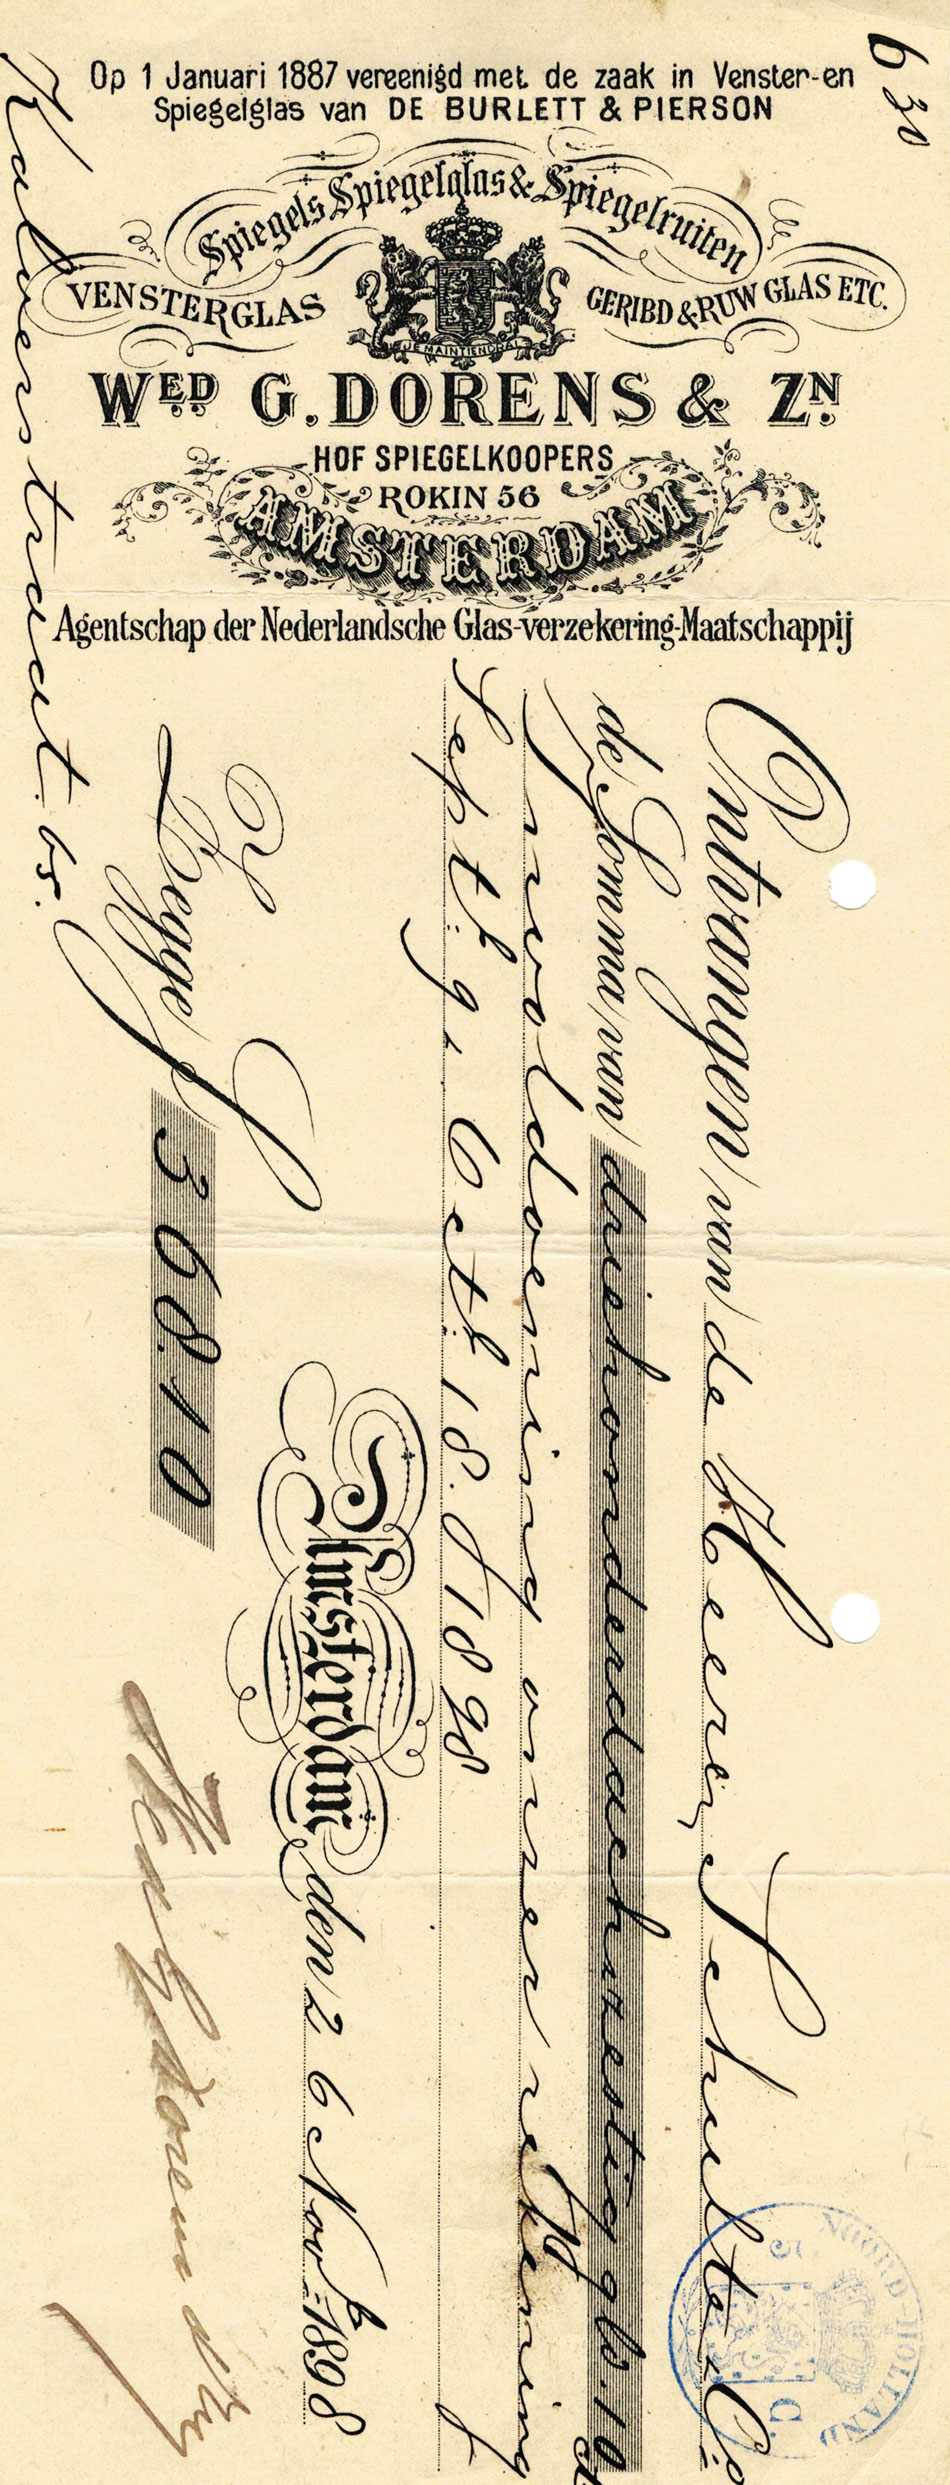 6 30
Op 1 Januari 1887 vereenigd met de zaak in Venster-en
Spiegelglas van DE BURLETT & PIERSON
Spiegels Spiegelglas & Spiegelruiten
VENSTERGLAS
GERIBD & RUW GLAS ETC.
JE MAINTIENDRAI
WED G. DORENS & ZN.
HOF SPIEGELKOOPERS
ROKIN 56
AMSTERDAM
Agentschap der Nederlandsche Glas-verzekering-Maatschappij
Ontvangen van de Heeren Schulte & Co
de Somma van driehonderdachtzestig gld. 10 ct
in voldoening onzer rekening pr
Sept. 9, Oct. 18. f 1898
Amsterdam den 26 Nov. 1898
Zegge f 368.10
Kalverstraat 65.
NOORD-HOLLAND
5 C.